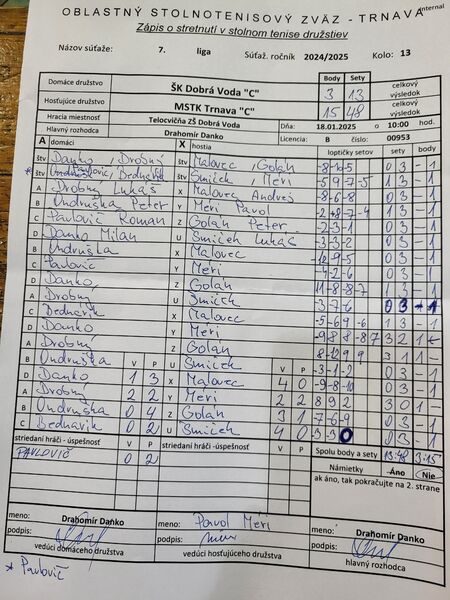 Internal
OBLASTNÝ STOLNOTENISOVÝ ZVÄZ - TRNAVA
Zápis o stretnutí v stolnom tenise družstiev
Názov súťaže: 7. liga Súťaž. ročník 2024/2025 Kolo: 13
Body Sety celkový výsledok
Domáce družstvo ŠK Dobrá Voda "C" 3 13
Hosťujúce družstvo MSTK Trnava "C" 15 48 celkový výsledok
Hracia miestnosť Telocvičňa ZŠ Dobrá Voda Dňa: 18.01.2025 o 10:00 hod.
Hlavný rozhodca Drahomír Danko Licencia: B číslo: 00953
A domáci X hostia loptičky setov sety body
štv Danko, Drobný štv Malovec, Golán 0 3 - 1
* štv Pavlovič, Bednarik štv Smiček, Meri 1 3 - 1
A Drobný Lukáš X Malovec Andrej -8-6-8 0 3 - 1
B Undruška Peter Y Meri Pavol -2+8-7-4 1 3 - 1
C Pavlovič Roman Z Golán Peter -2-3-1 0 3 - 1
D Danko Milan U Smiček Lukáš -3-3-2 0 3 - 1
B Undruška X Malovec 0 3 - 1
C Pavlovič Y Meri -4-2-6 0 3 - 1
D Danko Z Golán 1 3 - 1
A Drobný U Smiček -3-7-6 0 3 - 1
C Bednarik X Malovec 1 3 - 1
D Danko Y Meri 3 2 1 -
A Drobný Z Golán 3 1 1 -
B Undruška V P U Smiček V P -3-1-2 0 3 - 1
D Danko 1 3 X Malovec 4 0 -9-8-10 0 3 - 1
A Drobný 2 2 Y Meri 2 2 8 9 2 3 0 1 -
B Undruška 0 4 Z Golán 3 1 -7-6-9 0 3 - 1
C Bednarik 0 2 U Smiček 4 0 0 3 - 1
striedaní hráči - úspešnosť V P striedaní hráči - úspešnosť V P Spolu body a sety 13:48 3:15
PAVLOVIČ 0 2 Námietky Áno Nie
ak áno, tak pokračujte na 2. strane
meno: Drahomír Danko meno: Pavol Meri meno: Drahomír Danko
podpis: podpis: podpis:
vedúci domáceho družstva vedúci hosťujúceho družstva hlavný rozhodca
* Pavlovič